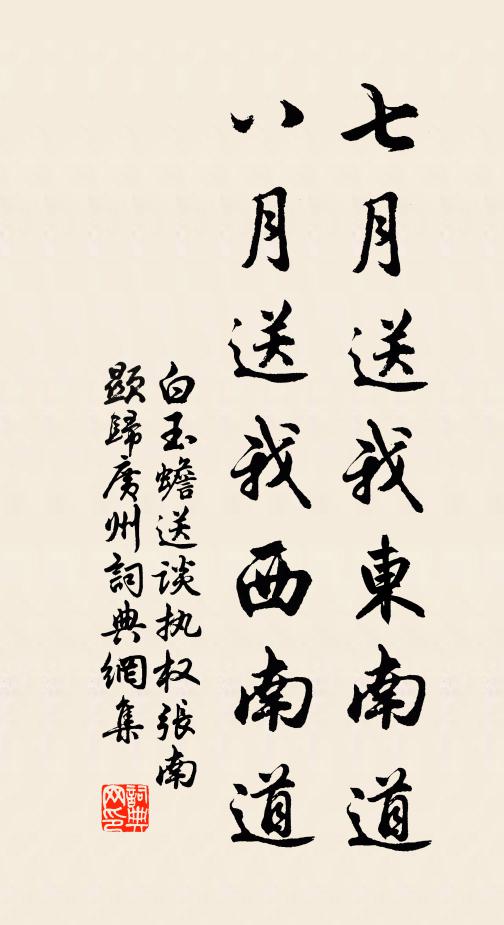 七月送我東南道
八月送我西南道
白玉蟾送谈执权張南
顯歸廣州詞典網集
詞典
网印